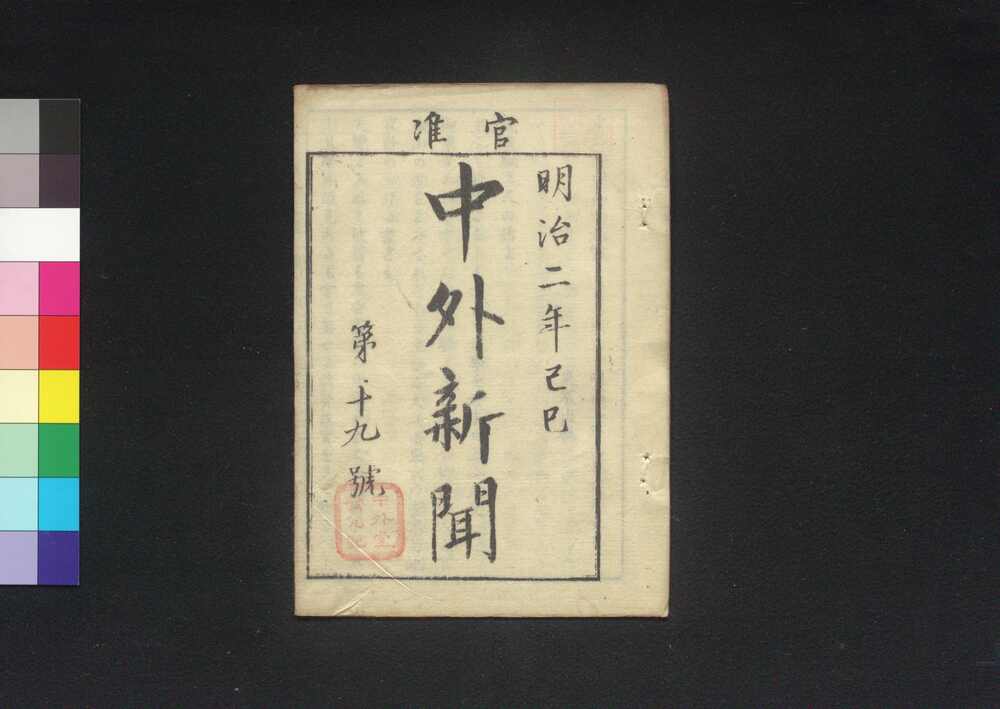 官准
明治二年己巳
中外新聞
第十九號